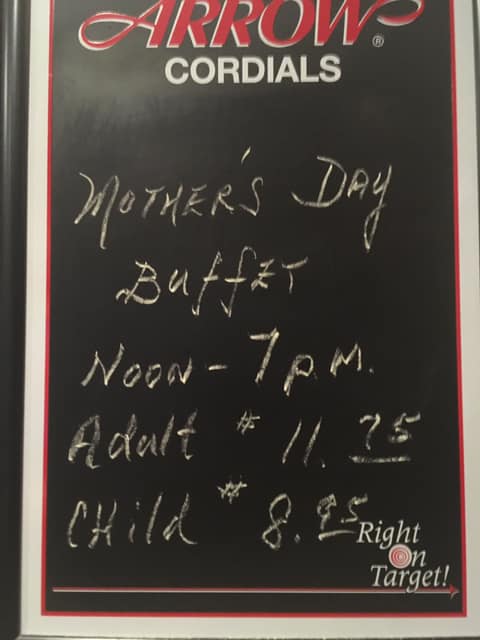 ARROW®
CORDIALS
MOTHER'S DAY
BuffET
NOON - 7 P.M.
Adult $ 11.75
CHild $ 8.95
Right
On
Target!